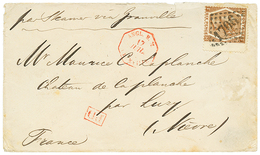 per Steamer via Granville
Mr Maurice C. Laplanche
chateau de la planche
par Luzy
(Nièvre)
France